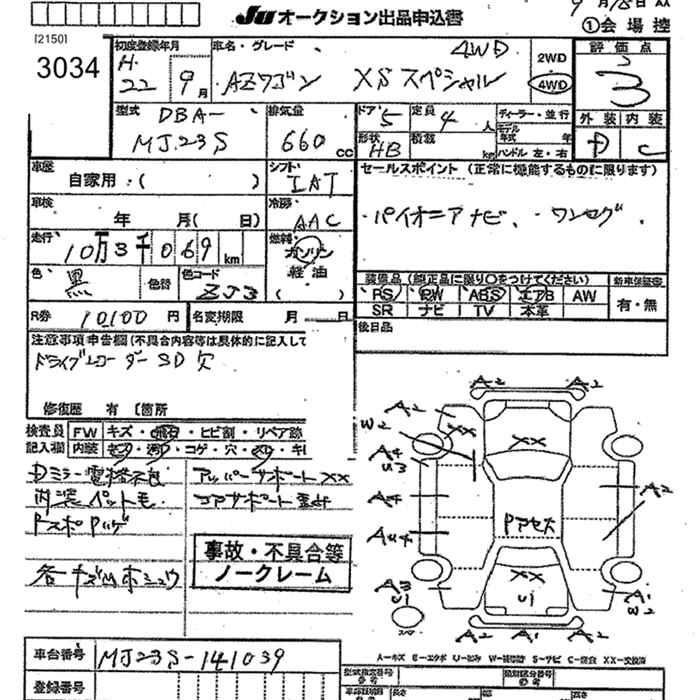 9月18日 AA
JU オークション出品申込書
①会場控
[2150]
3034
初度登録年月
H. 22 9月
車名・グレード
4WD
AZワゴン XSスペシャル
2WD
4WD
評価点
3
外装 内装
D C
型式
DBA-
MJ23S
排気量
660 cc
ドア 5
定員 4 人
形状 HB
積載 kg
ディーラー・並行
モデル年式 年
ハンドル 左・右
車歴
自家用・( )
シフト
IAT
セールスポイント (正常に機能するものに限ります)
・パイオニアナビ、・ワンセグ.
車検
年 月( 日)
冷房
AAC
走行
10万3千069km
燃料
ガソリン
軽油
( )
色
黒
色替
色コード
ZJ3
装備品 (純正品に限り○をつけてください)
PS PW ABS エアB AW
SR ナビ TV 本革
新車保証書
有・無
R券 10,100 円
名変期限 月 日
後日品
注意事項申告欄(不具合内容等は具体的に記入して
ドライブレコーダーSD欠
修復歴 有 [箇所
検査員記入欄
FW キズ・飛石・ヒビ割・リペア跡
内装 コゲ・穴・
Dミラー電格不良
アッパーサポートXX
内装ペット毛
コアサポート
各キズ凹ホシュウ
事故・不具合等
ノークレーム
A2 A2
A2
W2
XX XX
A4
U3
A4
A2
Au4
A3
U1
XX
U1
A1
W2
A2 A1 A2
スペア
車台番号 MJ23S-141039
登録番号
A-キズ E-エクボ U-凹み W-補修跡 S-サビ C-腐食 XX-交換済
型式指定番号
参考
類別区分番号
参考
長さ